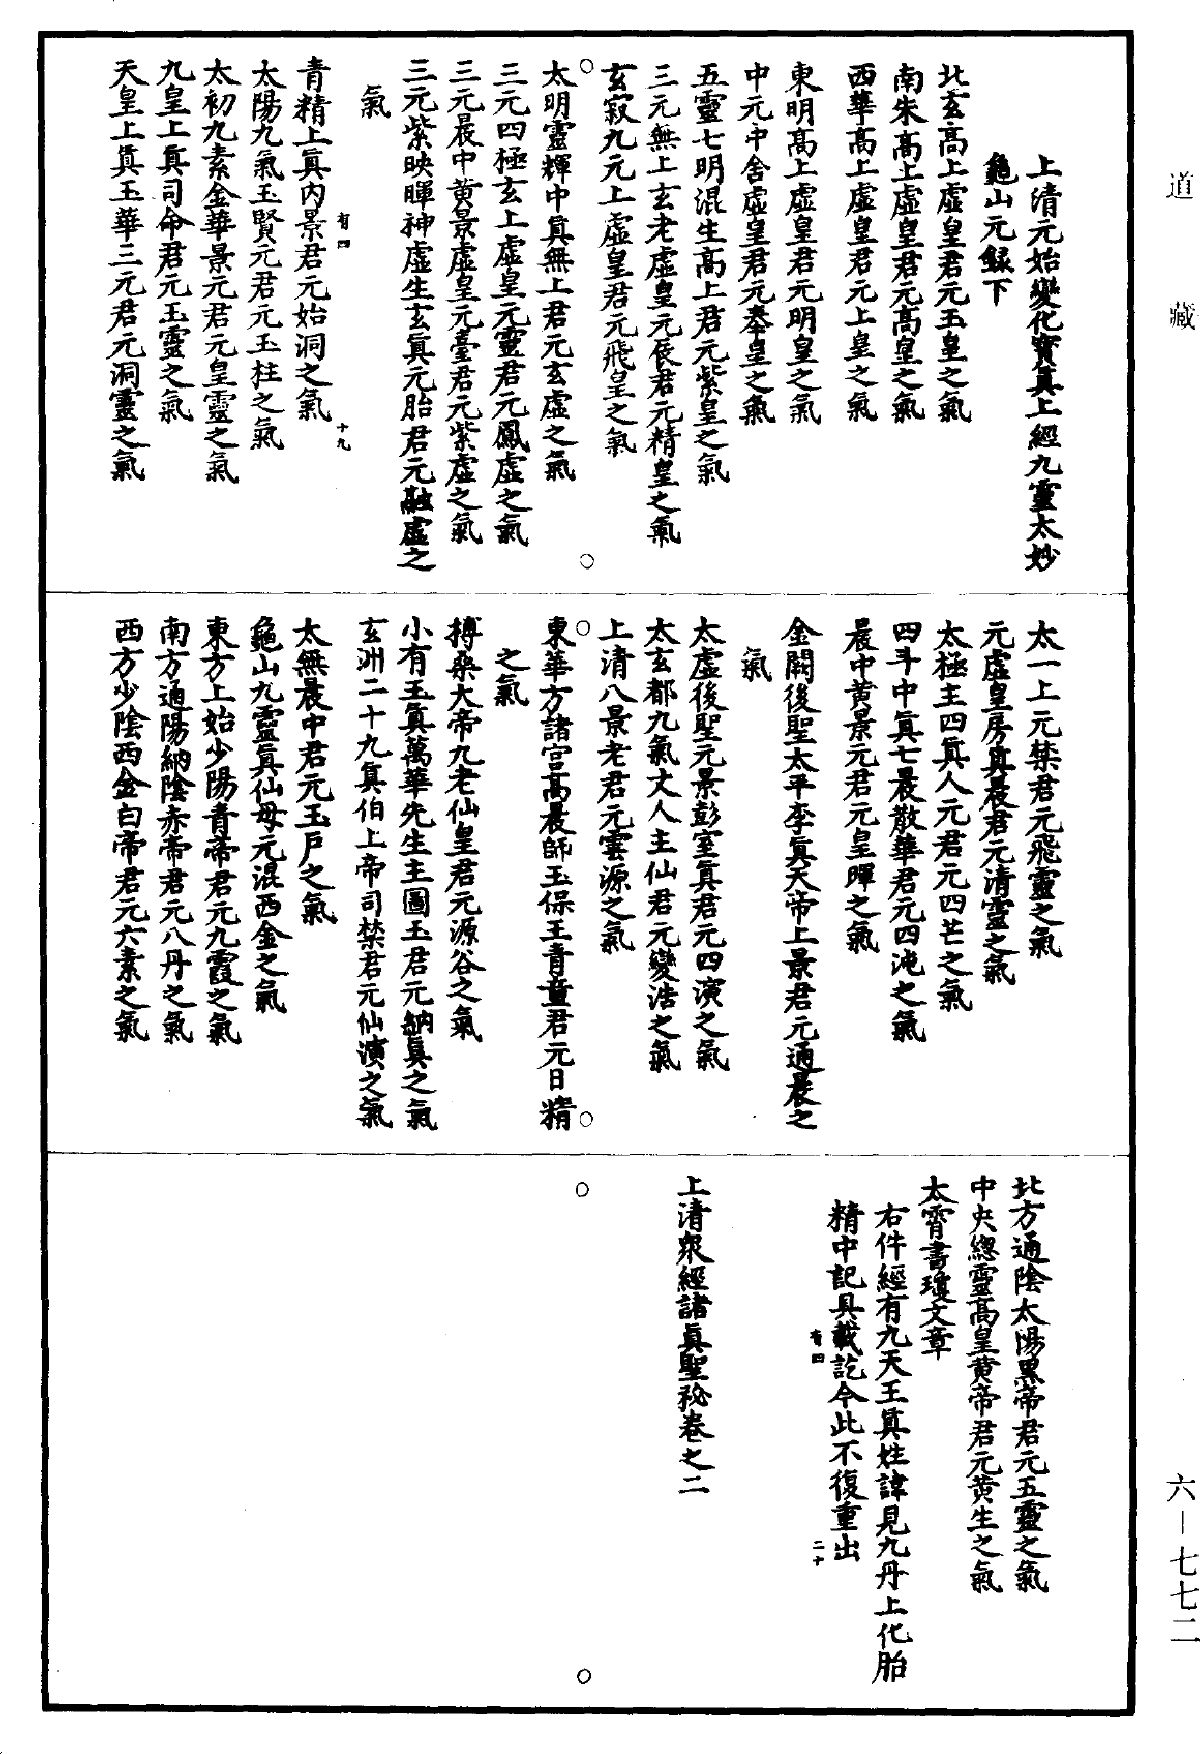 道藏
上清元始變化寶眞上經九靈太妙
龜山元錄下
北玄高上虛皇君元玉皇之氣
南朱高上虛皇君元高皇之氣
西華高上虛皇君元上皇之氣
東明高上虛皇君元明皇之氣
中元中舍虛皇君元奉皇之氣
五靈七明混生高上君元紫皇之氣
三元無上玄老虛皇元俊君元精皇之氣
玄寂九元上虛皇君元飛皇之氣
太明靈輝中眞無上君元玄虛之氣
三元四極玄上虛皇元靈君元鳳虛之氣
三元晨中黃景虛皇元臺君元紫虛之氣
三元紫映暉神虛生玄眞元胎君元融虛之
氣
有四 十九
青精上眞內景君元始洞之氣
太陽九氣玉賢元君元玉柱之氣
太初九素金華景元君元皇靈之氣
九皇上眞司命君元玉靈之氣
天皇上眞玉華三元君元洞靈之氣
太一上元禁君元飛靈之氣
元虛皇房眞晨君元清靈之氣
太極主四眞人元君元四芒之氣
四斗中眞七晨散華君元四沌之氣
晨中黃景元君元皇暉之氣
金闕後聖太平李眞天帝上景君元通晨之
氣
太虛後聖元景彭室眞君元四演之氣
太玄都九氣丈人主仙君元變浩之氣
上清八景老君元雲源之氣
東華方諸宮高晨師玉保王青童君元日精
之氣
搏桑大帝九老仙皇君元源谷之氣
小有玉眞萬華先生主圖玉君元納眞之氣
玄洲二十九眞伯上帝司禁君元仙演之氣
太無晨中君元玉戶之氣
龜山九靈眞仙母元混西金之氣
東方上始少陽青帝君元九霞之氣
南方通陽納陰赤帝君元八丹之氣
西方少陰西金白帝君元六素之氣
北方通陰太陽黑帝君元五靈之氣
中央總靈高皇黃帝君元黃生之氣
太霄書瓊文章
右件經有九天王眞姓諱見九丹上化胎
精中記具載訖今此不復重出
有四 二十
上清衆經諸眞聖祕卷之二
六—七七二